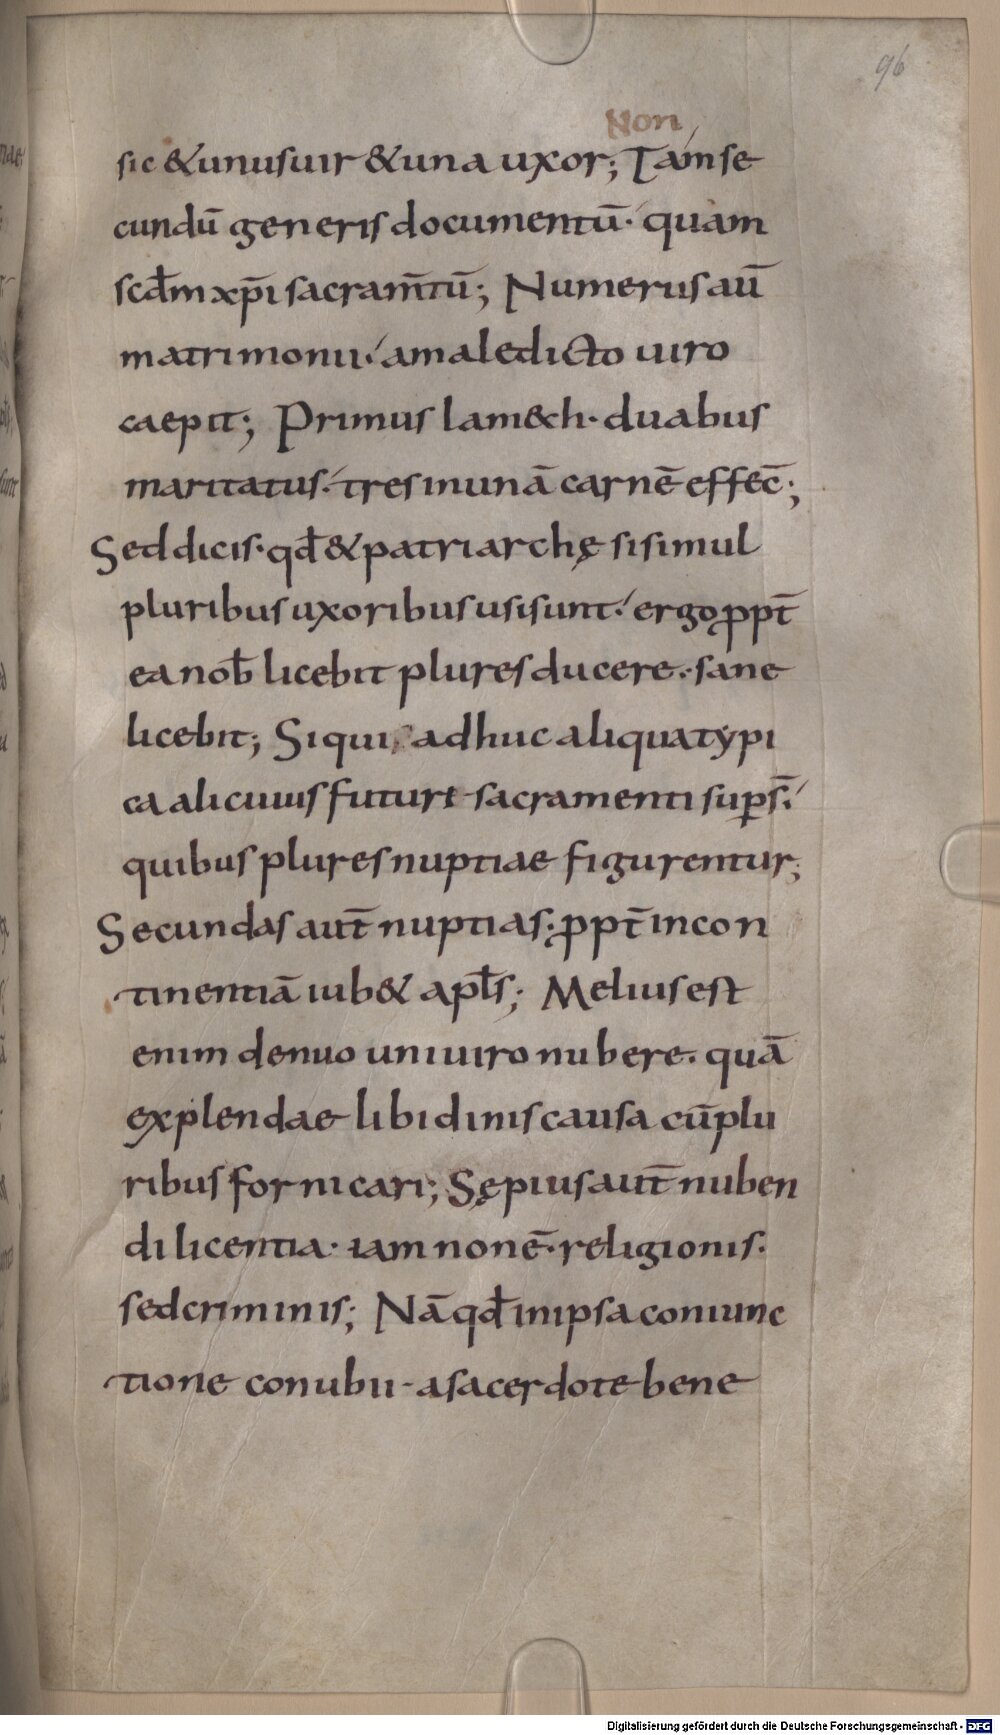 96
Non
sic &unusuir &una uxor; Tamse
cundū generis documentū· quam
scđm xp̄i sacram̄tū; Numerus aū
matrimonii· amaledicto uiro
caepit; Primus lam&h· duabus
maritatus· tres inunā carnē effec̄;
Sed dicis· qđ &patriarchę si simul
pluribus uxoribus usi sunt· ergo ꝓpt̄
ea nob̄ licebit plures ducere· sane
licebit; Si qui adhuc aliqua typi
ca alicuius future sacramenti sup̄s̄·
quibus plures nuptiae figurentur;
Secundas aut̄ nuptias· ꝓpt̄ incon
tinentiā iub& apl̄s; Melius est
enim denuo uni uiro nubere· quā
explendae libidinis causa cū plu
ribus fornicari; Sępius aut̄ nuben
di licentia· iam non ē· religionis·
sed criminis; Nā qđ in ipsa coniunc
tione conubii· a sacerdote bene
Digitalisierung gefördert durch die Deutsche Forschungsgemeinschaft - DFG